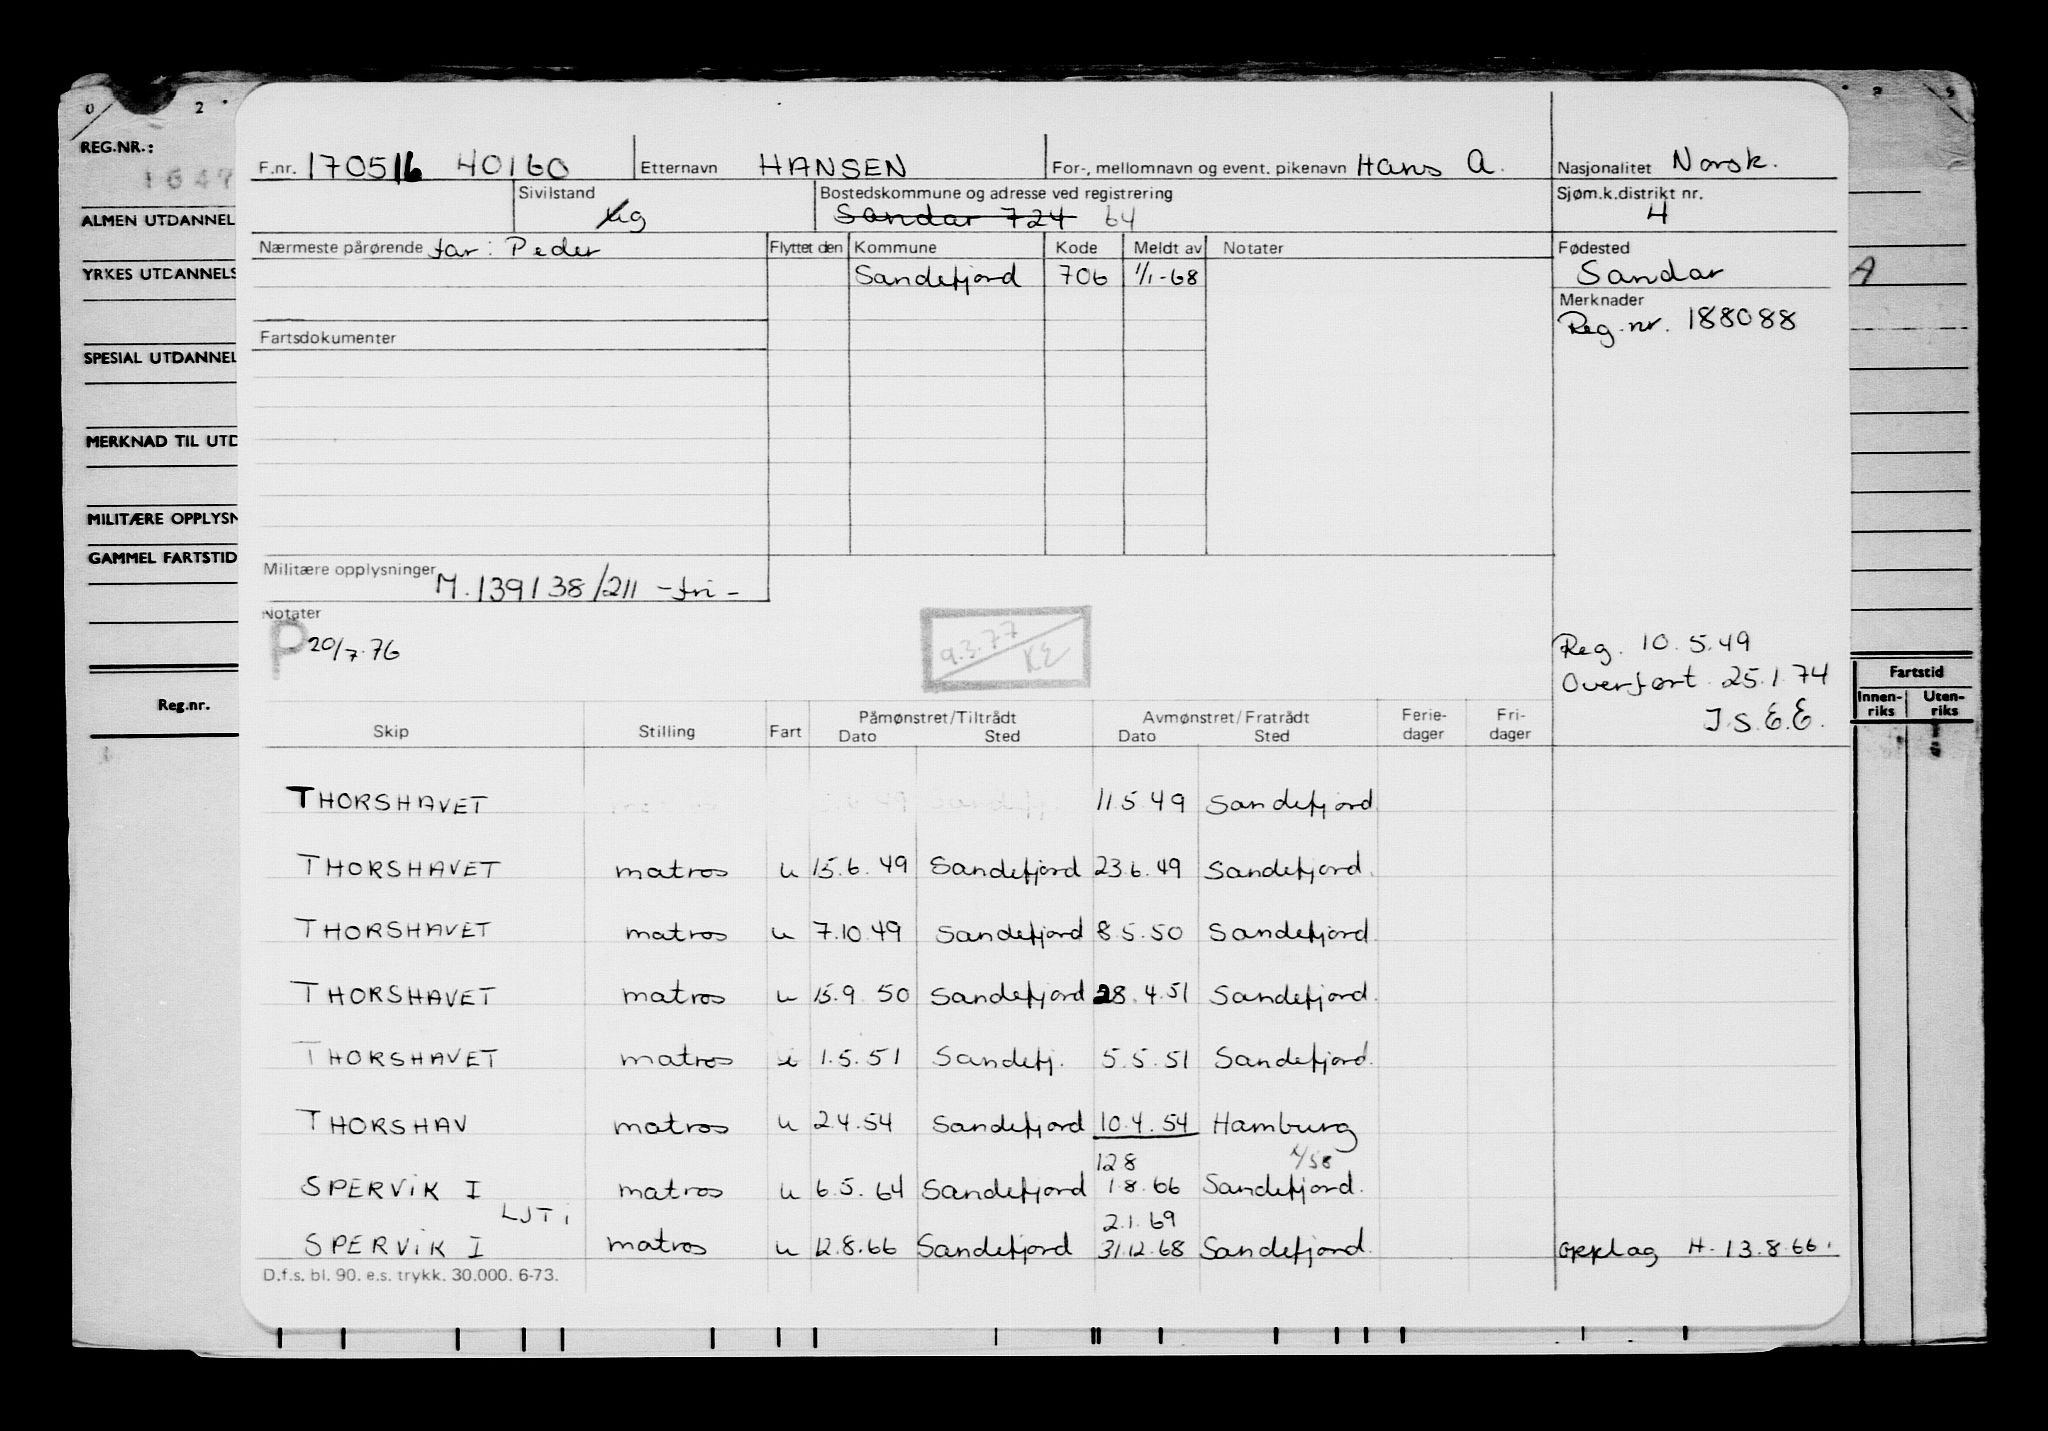 0 2
REG.NR.:
ALMEN UTDANNEL
YRKES UTDANNELS
SPESIAL UTDANNEL
MERKNAD TIL UTD
MILITÆRE OPPLYSN
GAMMEL FARTSTID
Reg.nr.
F.nr. 170516 40160 Etternavn HANSEN For-, mellomnavn og event. pikenavn Hans A. Nasjonalitet Norsk.
Sivilstand Bostedskommune og adresse ved registrering Sjøm.k.distrikt nr.
ug Sandar 724 64 4
Nærmeste pårørende far: Peder Flyttet den Kommune Kode Meldt av Notater Fødested
Sandefjord 706 1/1-68 Sandar
A
Merknader
Reg.nr. 188088
Fartsdokumenter
Militære opplysninger M.139138/211 -fri-
Notater
P 20/7.76
9.3.77
KE
Reg. 10.5.49
Overført 25.1.74
J.S.E.E.
Fartstid
Innen- Uten-
riks riks
Skip Stilling Fart Påmønstret/Tiltrådt Avmønstret/Fratrådt Ferie- Fri-
Dato Sted Dato Sted dager dager
THORSHAVET 11.5.49 Sandefjord
THORSHAVET matros u 15.6.49 Sandefjord 23.6.49 Sandefjord.
THORSHAVET matros u 7.10.49 Sandefjord 8.5.50 Sandefjord.
THORSHAVET matros u 15.9.50 Sandefjord 28.4.51 Sandefjord.
THORSHAVET matros i 1.5.51 Sandefj. 5.5.51 Sandefjord.
THORSHAV matros u 2.4.54 Sandefjord 10.4.54 Hamburg
12.8
SPERVIK I matros u 6.5.64 Sandefjord 1.8.66 Sandefjord.
LJTI 2.1.69
SPERVIK I matros u 12.8.66 Sandefjord 31.12.68 Sandefjord. opplag H. 13.8.66.
D.f.s. bl. 90. e.s. trykk. 30.000. 6-73.